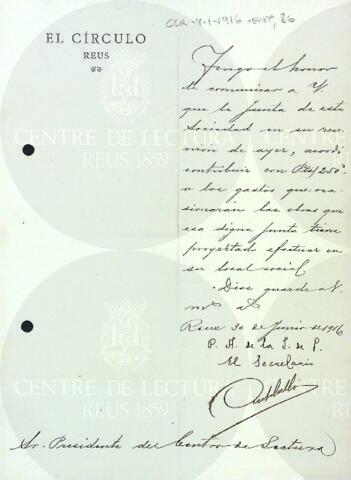 CCR-4-1-1916-
EL CÍRCULO
REUS
Tengo el honor
de comunicar a V.
que la Junta de esta
Sociedad en su reu-
nión de ayer, acordó
contribuir con Ptas/250
a los gastos que oca-
sionarán las obras que
esa digna Junta tiene
proyectado efectuar en
su local social.
Dios guarde a V.
m. a.
Reus 30 de Junio de 1916
P. A. de la J. de
El Secretario
Sr. Presidente del Centro de Lectura
CENTRE DE LECTURA
REUS 1859
CENTRE DE LECTURA
REUS 1859